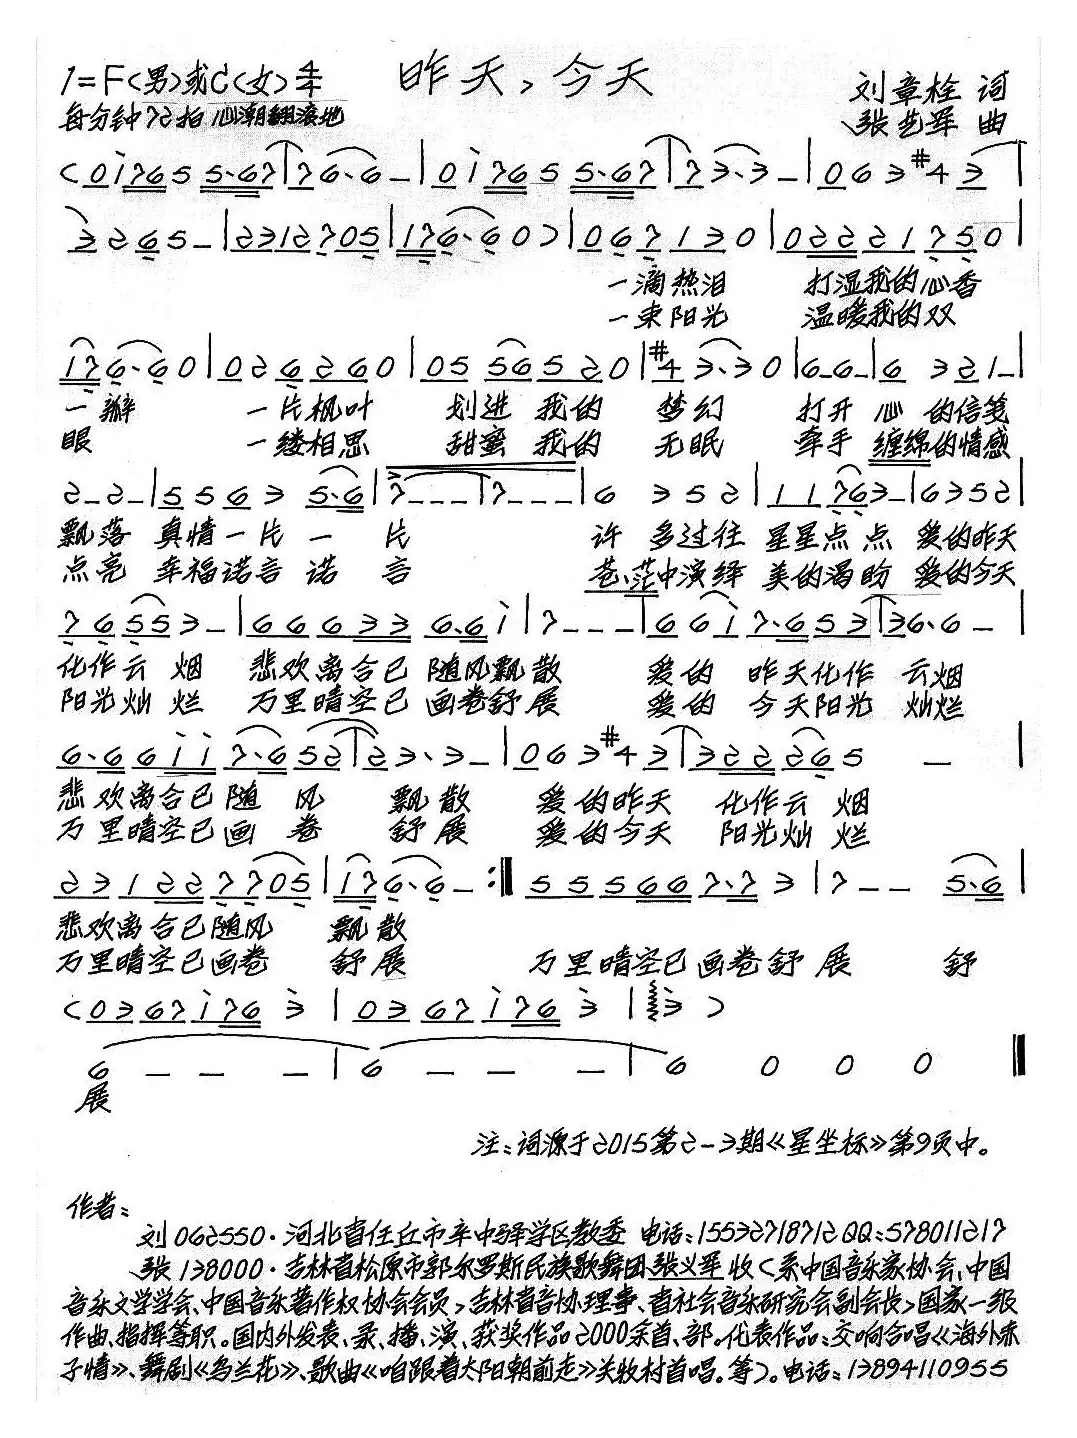 1=F(男)或C(女) 4/4 昨天,今天
刘章栓 词
每分钟72拍 心潮翻滚地
张艺军 曲
(0i765 5·67|76·6-|0i765 5·67|73·3-|063#43|
3265-|2312705|176·60)|067130|02221750|
一滴热泪 打湿我的心香
一束阳光 温暖我的双
176·60|026260|0556520|#43·30|6-6-|6 321-|
一瓣 一片枫叶 划进 我的 梦幻 打开 心 的信笺
眼 一缕相思 甜蜜 我的 无眠 牵手 缠绵的情感
2-2-|5563 5·6|7---|7---|6 352|11763-|6352|
飘落 真情一片 一 片 许 多过往 星星点 点 爱的昨天
点亮 幸福诺言 诺 言 苍茫中演绎 美的渴盼 爱的今天
76553-|66633 6·6i|7---|66i 7·653|36·6-|
化作云 烟 悲欢离合已 随风飘散 爱的 昨天化作 云烟
阳光灿 烂 万里晴空已 画卷舒展 爱的 今天阳光 灿烂
6·66ii 7·652|23·3-|063#43|322265 -|
悲欢离合已随 风 飘散 爱的昨天 化作云 烟
万里晴空已画 卷 舒展 爱的今天 阳光灿 烂
231227705|176·6-:‖555667·73|7-- 5·6|
悲欢离合已随风 飘散
万里晴空已画卷 舒展 万里晴空已画卷舒展 舒
(0367i763|0367i763|3)
6 - - -|6 - - -|6 0 0 0‖
展
注:词源于2015第2-3期《星坐标》第9页中。
作者:
刘 062550·河北省任丘市辛中驿学区教委 电话:15532718712QQ:578011217
张 138000·吉林省松原市郭尔罗斯民族歌舞团张义军 收(系中国音乐家协会、中国
音乐文学学会、中国音乐著作权协会会员,吉林省音协理事、省社会音乐研究会副会长,国家一级
作曲、指挥等职。国内外发表、录、播、演、获奖作品2000余首、部。代表作品:交响合唱《海外赤
子情》、舞剧《乌兰花》、歌曲《咱跟着太阳朝前走》关牧村首唱。等)。电话:13894110955